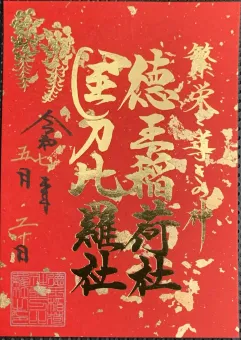 繁栄導きの神
徳王稲荷社
金刀比羅社
令和七年
五月二十日